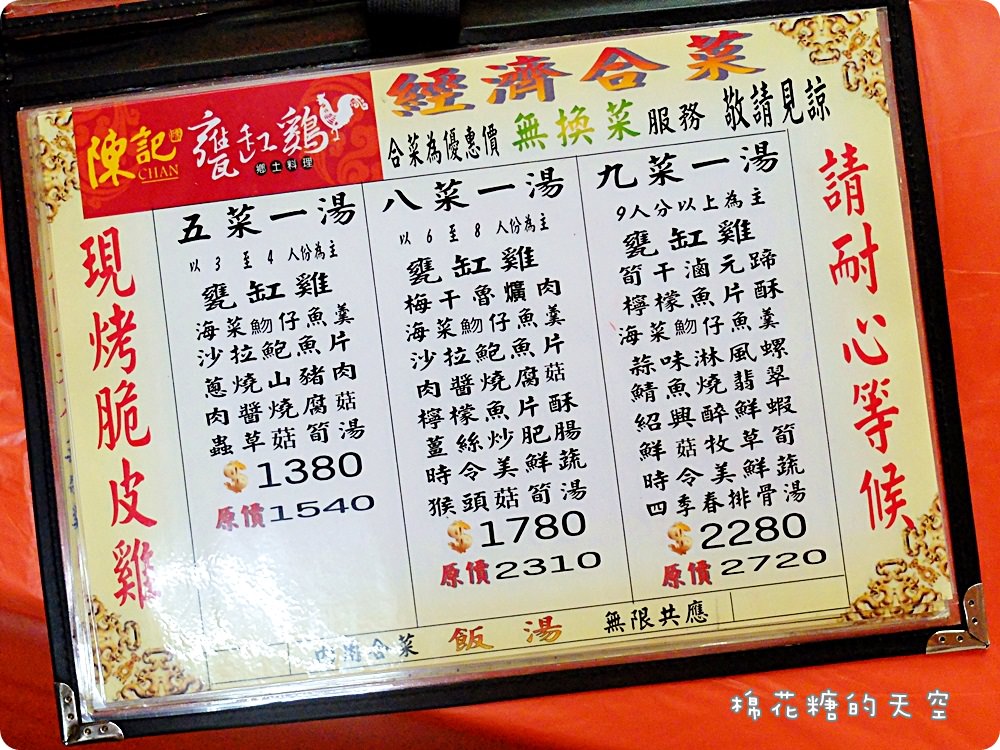 陳記
CHAN
甕缸鷄
鄉土料理
經濟合菜
合菜為優惠價 無換菜服務 敬請見諒
現烤脆皮雞
五菜一湯
以 3 至 4 人份為主
甕缸雞
海菜魩仔魚羹
沙拉鮑魚片
蔥燒山豬肉
肉醬燒腐菇
蟲草菇筍湯
$1380
原價1540
八菜一湯
以 6 至 8 人份為主
甕缸雞
梅干魯爌肉
海菜魩仔魚羹
沙拉鮑魚片
肉醬燒腐菇
檸檬魚片酥
薑絲炒肥腸
時令美鮮蔬
猴頭菇筍湯
$1780
原價2310
九菜一湯
9人分以上為主
甕缸雞
筍干滷元蹄
檸檬魚片酥
海菜魩仔魚羹
蒜味淋風螺
鯖魚燒翡翠
紹興醉鮮蝦
鮮菇牧草筍
時令美鮮蔬
四季春排骨湯
$2280
原價2720
請耐心等候
合菜 飯 湯 無限共應
棉花糖的天空